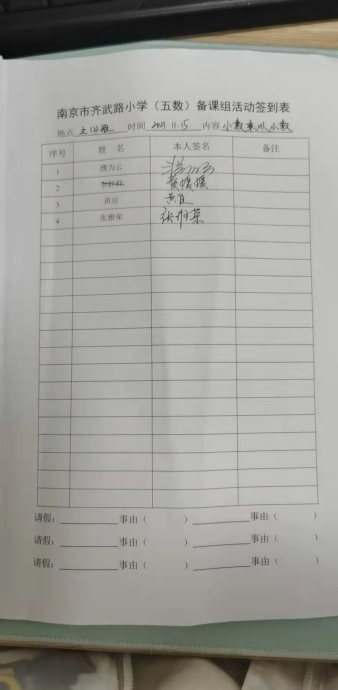 南京市齐武路小学（五数）备课组活动签到表
地点 时间 2021.11.15 内容 小数乘以小数
序号 姓 名 本人签名 备注
1 濮为云
2 黄媛媛
3 黄佳 黄佳
4 张雅荣 张雅荣
请假：__________事由（ ）__________事由（ ）
请假：__________事由（ ）__________事由（ ）
请假：__________事由（ ）__________事由（ ）